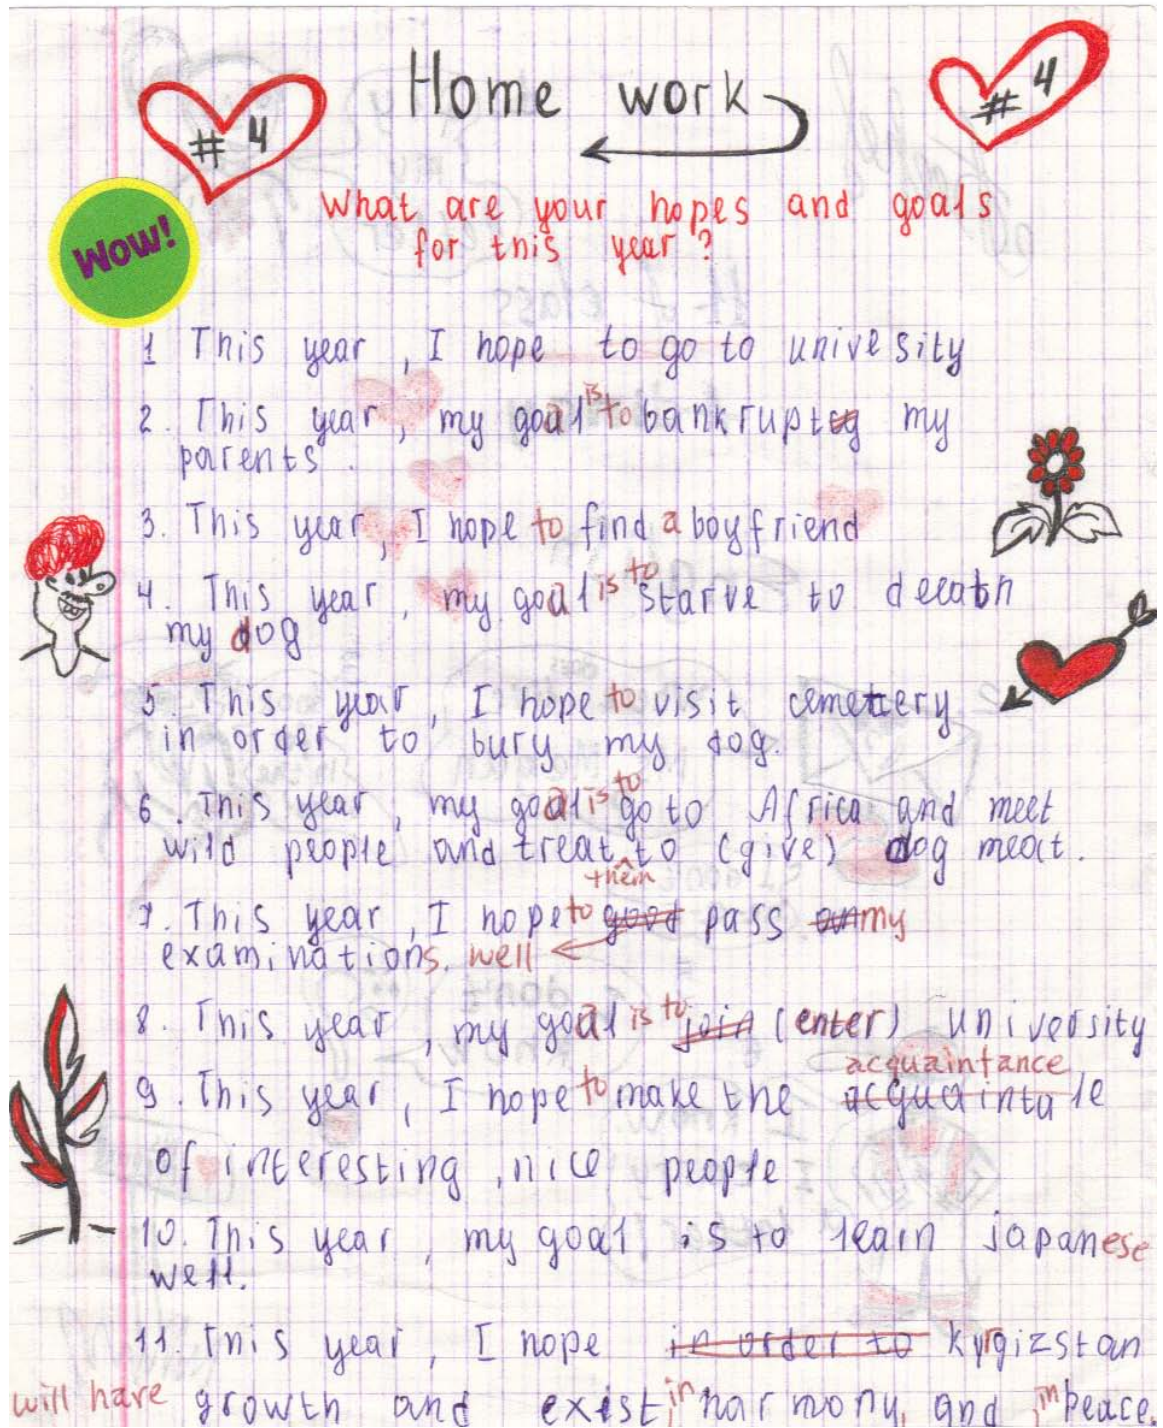 Home work
# 4
# 4
Wow!
What are your hopes and goals
for this year?
1 This year, I hope to go to univesity
2. This year, my goal is to bankruptcy my
parents.
3. This year, I hope to find a boyfriend
4. This year, my goal is to starve to death
my dog
5. This year, I hope to visit cemetery
in order to bury my dog.
6. This year, my goal is to go to Africa and meet
wild people and treat to (give) dog meat.
them
7. This year, I hope to good pass my
examinations. well
8. This year, my goal is to join (enter) University
acquaintance
9. This year, I hope to make the acquaintale
of interesting, nice people
10. This year, my goal is to learn japanese
well.
11. This year, I hope in order to Kyrgizstan
will have growth and exist in harmony, and in peace.